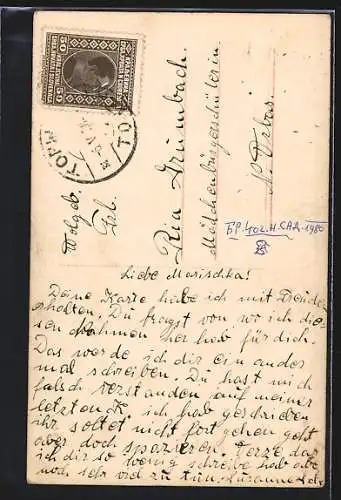 50 50
TOPЖ
Wolgeb.
Frl.
Ria Grumbach
Mädchenbürgerschülerin
N. Vrbas.
1980
Liebe Marischka!
Deine Karte habe ich mit Freuden
erhalten. Du fragst von wo ich die-
sen Rahmen her hab für dich.
Das werde ich dir ein ander
mal schreiben. Du hast mich
falsch verstanden auf meiner
letzten K. ich hab geschrieben
ihr soltet nicht fort gehen geht
aber doch spazieren. Verze. daß
ich dir so wenig schreibe hab abe
noch sehr viel zu tun.